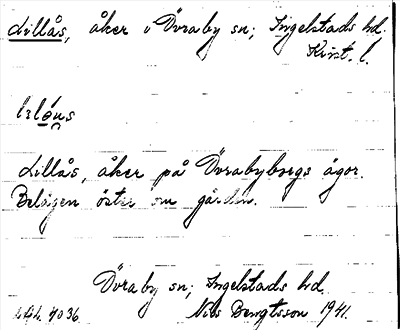 Lillås, åker i Övraby sn; Ingelstads hd.
Krist. l.
Lillås, åker på Övrabyborgs ägor.
Belägen öster om gården.
Övraby sn; Ingelstads hd.
Nils Bengtsson 1941.